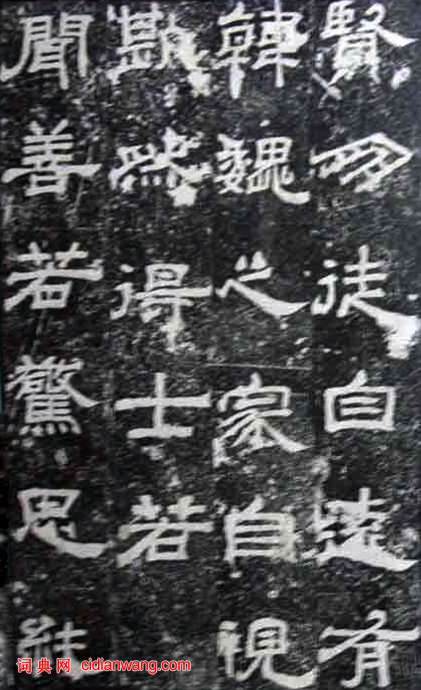 賢朋徒自遠有
韓魏之家自視
欿然得士若
聞善若驚思純
词典网 cidianwang.com